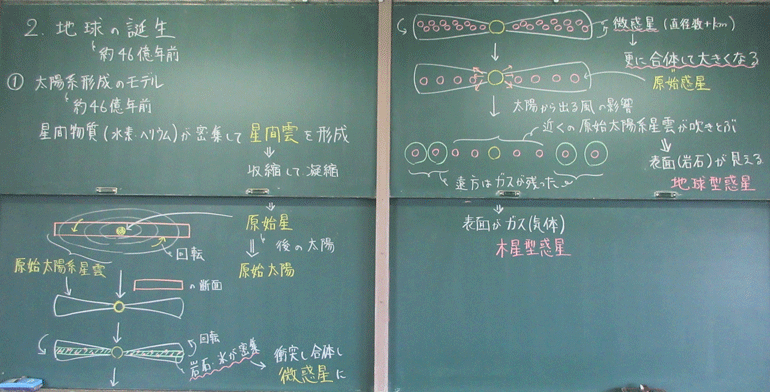 2. 地球の誕生
約46億年前
① 太陽系形成のモデル
約46億年前
星間物質(水素・ヘリウム)が密集して 星間雲 を形成
収縮して凝縮
原始星
後の太陽
原始太陽
回転
原始太陽系星雲
の断面
回転
岩石・氷が密集
衝突し合体し
微惑星に
微惑星(直径数+km)
更に合体して大きくなる
原始惑星
太陽から出る風の影響
近くの原始太陽系星雲が吹きとぶ
表面(岩石)が見える
地球型惑星
遠方はガスが残った
表面がガス(気体)
木星型惑星